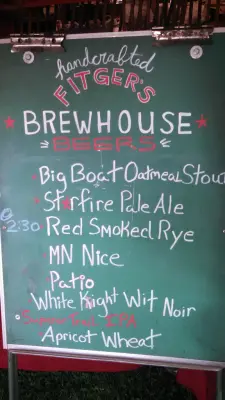 handcrafted
FITGER'S
BREWHOUSE
BEERS
Big Boat Oatmeal Stou
Starfire Pale Ale
@ 2:30 Red Smoked Rye
MN Nice
Patio
White Knight Wit Noir
IPA
Apricot Wheat